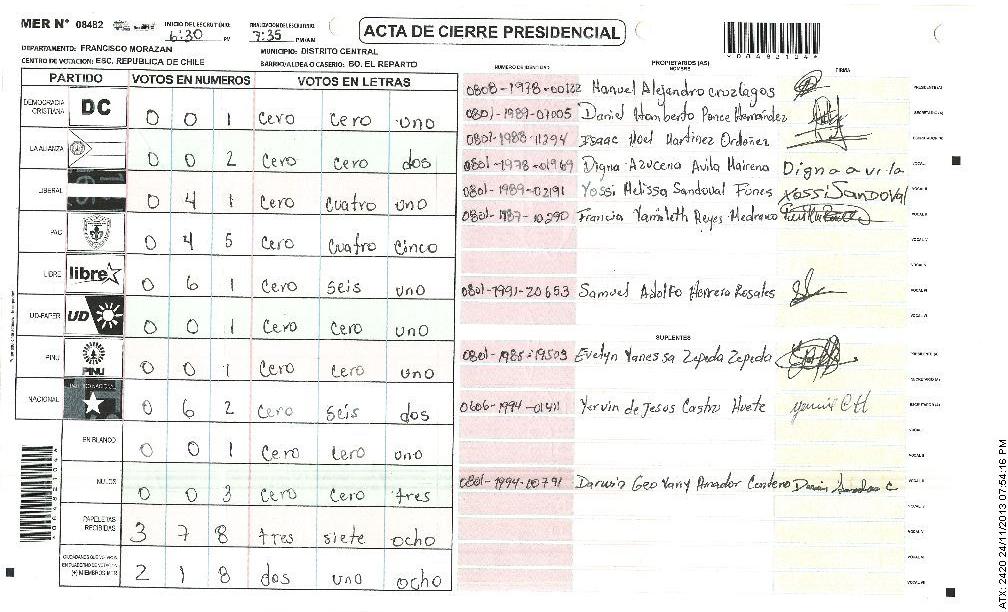 MER N° 08482 INICIO DEL ESCRUTINIO: 6:30 PM FINALIZACION DEL ESCRUTINIO: 7:35 PM/AM
ACTA DE CIERRE PRESIDENCIAL
DEPARTAMENTO: FRANCISCO MORAZAN MUNICIPIO: DISTRITO CENTRAL
CENTRO DE VOTACION: ESC. REPUBLICA DE CHILE BARRIO/ALDEA O CASERIO: BO. EL REPARTO
PARTIDO VOTOS EN NUMEROS VOTOS EN LETRAS
DEMOCRACIA CRISTIANA DC 0 0 1 cero cero uno
LA ALIANZA 0 0 2 cero cero dos
LIBERAL 0 4 1 cero cuatro uno
PAC 0 4 5 cero cuatro cinco
LIBRE libre 0 6 1 cero seis uno
UD-FAPER UD 0 0 1 cero cero uno
PINU PINU 0 0 1 cero cero uno
NACIONAL 0 6 2 cero seis dos
EN BLANCO 0 0 1 cero cero uno
NULOS 0 0 3 cero cero tres
PAPELETAS RECIBIDAS 3 7 8 tres siete ocho
2 1 8 dos uno ocho
NUMERO DE IDENTIDAD PROPIETARIOS (AS) NOMBRE FIRMA
Manuel Alejandro cruz lagos PRESIDENTE(A)
0801-1989-07005 Daniel Homberto Ponce Hernández SECRETARIO(A)
0801-1988-11294 Isaac Noel Martinez Ordoñez ESCRUTADOR(A)
0801-1978-01969 Digna Azucena Avila Mairena Digna avila VOCAL I
0801-1989-02191 Yossi Melissa Sandoval Funes Yossi Sandoval VOCAL II
0801-1987-10290 Francia Yamileth Reyes Medrano
0801-1991-20653 Samuel Adolfo Herrera Rosales
SUPLENTES
0801-1985-19503 Evelyn Vanessa Zepeda Zepeda
SECRETARIO(A)
Yervin de Jesus Castro Huete ESCRUTADOR(A)
0801-1994-00791 Darwin Geovany Amador Centeno
ATX: 2420 24/11/2013 07:54:16 PM